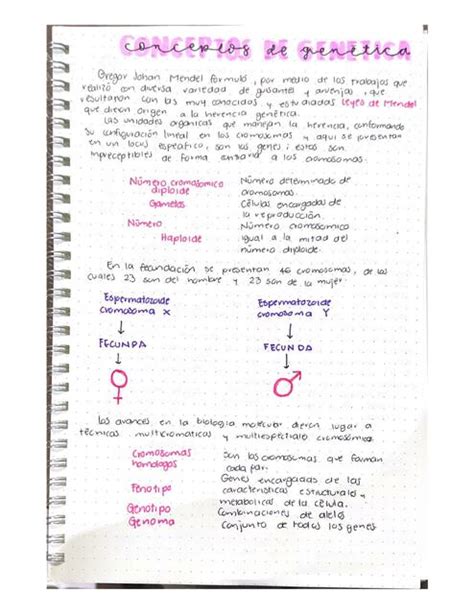 conceptos de genética
Gregor Johan Mendel formuló, por medio de los trabajos que
realizó con diversa variedad de guisante y arvenjas, que
resultaron con las muy conocidas y estudiadas Leyes de Mendel
que dieron origen a la herencia genética.
Las unidades organicas que manejan la herencia, conformando
su configuración lineal en los cromosomas y aqui se presentan
en un locus especifico, son los genes; estos son
imperceptibles de forma a los cromosomas.
Número cromosomico Número determinado de
diploide cromosomas.
Gametos Células encargadas de
la reproducción.
Número Número cromosomico
Haploide igual a la mitad del
número diploide.
En la fecundación se presentan 46 cromosomas, de los
cuales 23 son del hombre y 23 son de la mujer.
Espermatozoide Espermatozoide
cromosoma X cromosoma Y
FECUNDA FECUNDA
Los avances en la biologia molecular dieron lugar a
técnicas multicromaticas y cromosómica.
Cromosomas Son los cromosomas que forman
homologos cada par.
Genes encargadas de las
Fenotipo caracteristicas estructurales y
metabolicas de la célula.
Genotipo Combinaciones de alelos
Genoma Conjunto de todos los genes